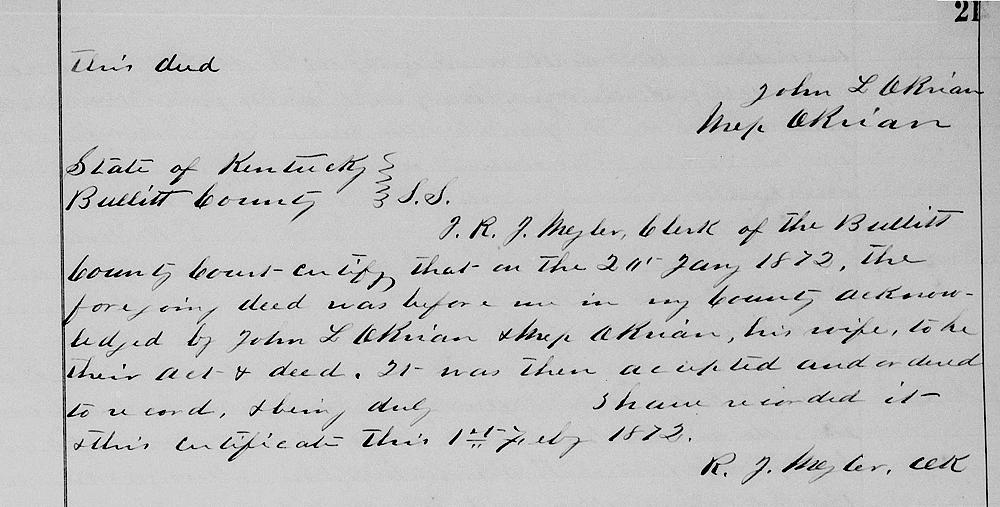 21
this deed
John L OBrian
Mep OBrian
State of Kentucky
Bullitt County } S.S.
I. R. J. Meyler, Clerk of the Bullitt
County Court certify that on the 2nd Jany 1872, the
foregoing deed was before me in my County acknow-
ledged by John L OBrian & Mep OBrian, his wife, to be
their act & deed. It was then accepted and ordered
to record, & being duly I have recorded it
& this certificate this 1st Feby 1872.
R. J. Meyler, clk